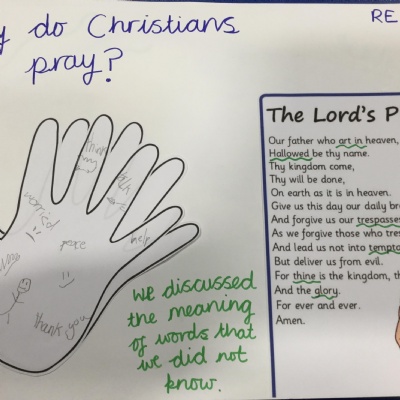 y do Christians
pray?
RE
The Lord's P
Our father who art in heaven,
Hallowed be thy name.
Thy kingdom come,
Thy will be done,
On earth as it is in heaven.
Give us this day our daily br
And forgive us our trespasse
As we forgive those who tres
And lead us not into tempta
But deliver us from evil.
For thine is the kingdom, th
And the glory.
For ever and ever.
Amen.
worried
peace
help
thank you
we discussed
the meaning
of words that
we did not
know.